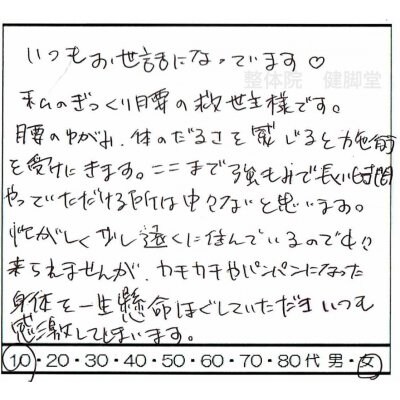 いつもお世話になっています♡
整体院 健脚堂
私のぎっくり腰の救世主様です。
腰のゆがみ、体のだるさを感じると施術
を受けにきます。ここまで強もみで長い時間
やっていただける所は中々ないと思います。
忙がしく少し遠くに住んでいるので中々
来られませんが、カモカチやパンパンになった
身体を一生懸命ほぐしていただき いつも
感激してしまいます。
10・20・30・40・50・60・70・80代 男・女